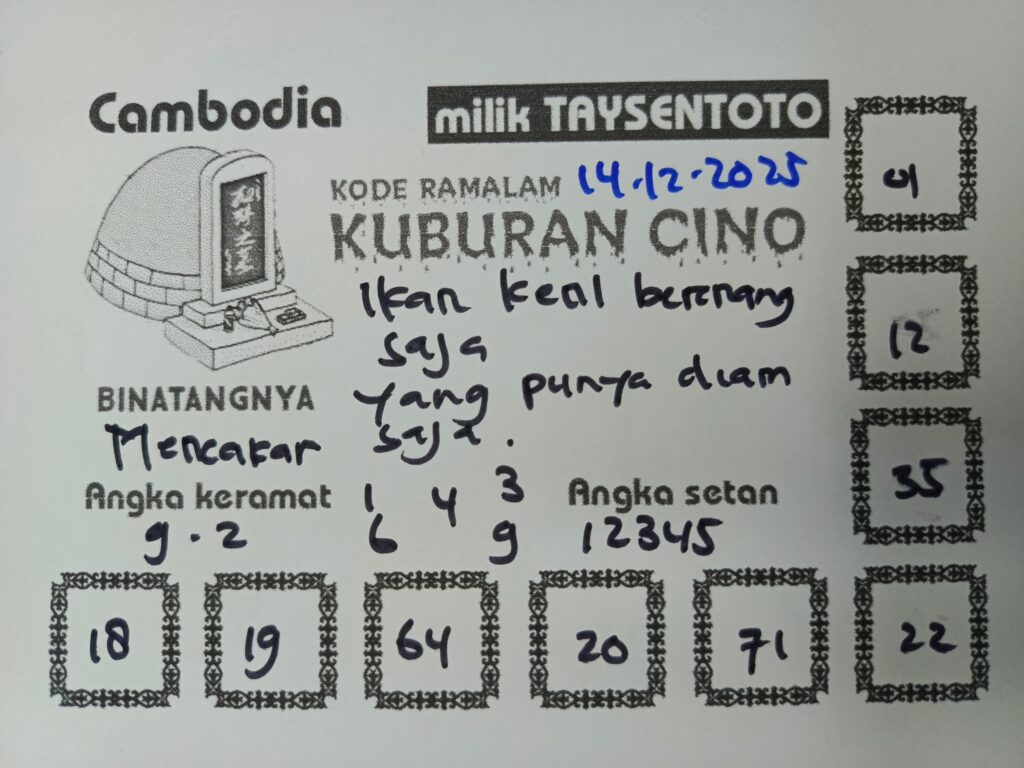 Cambodia
milik TAYSENTOTO
KODE RAMALAM 14.12.2025
KUBURAN CINO
Ikan kecil berenang
saja
yang punya diam
saja.
BINATANGNYA
Mencakar
Angka keramat
9.2
1 4 3
6 9
Angka setan
12345
01
12
35
18 19 64 20 71 22